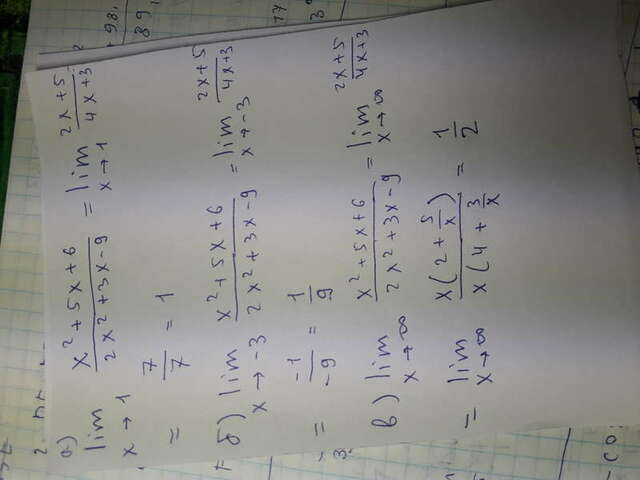 а)
lim x→1 (x²+5x+6)/(2x²+3x-9) = lim x→1 (2x+5)/(4x+3)
= 7/7 = 1
б) lim x→-3 (x²+5x+6)/(2x²+3x-9) = lim x→-3 (2x+5)/(4x+3)
= -1/-9 = 1/9
в) lim x→∞ (x²+5x+6)/(2x²+3x-9) = lim x→∞ (2x+5)/(4x+3)
= lim x→∞ x(2+5/x)/x(4+3/x) = 1/2